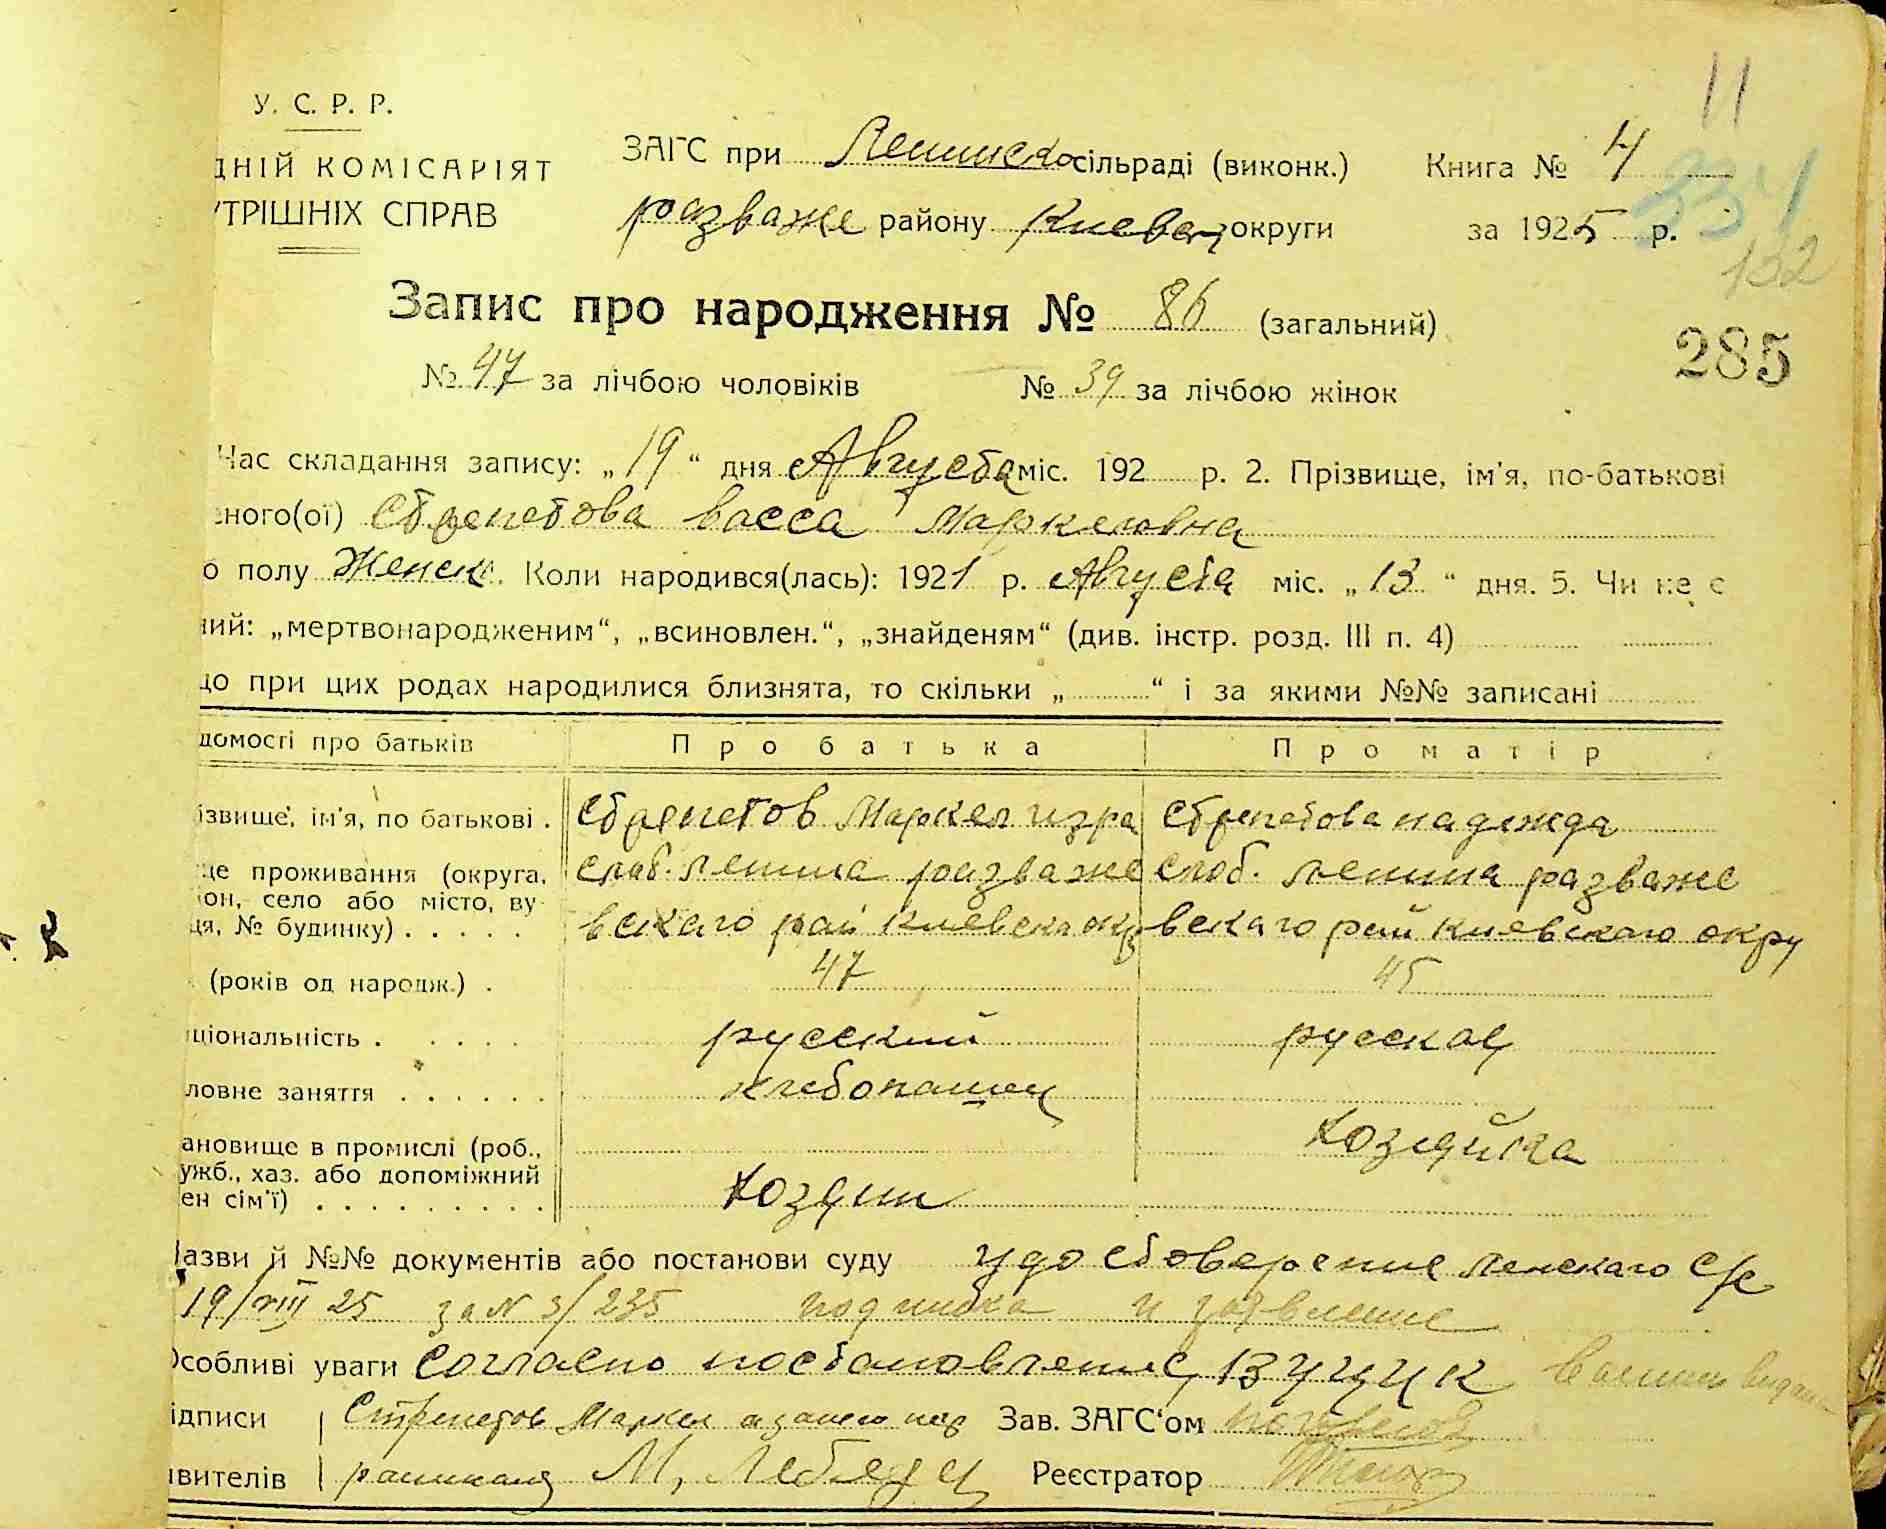 11
У. С. Р. Р.
ДНІЙ КОМІСАРІЯТ
УТРІШНІХ СПРАВ
ЗАГС при Ленинско сільраді (виконк.)
Книга № 4
334
розваже району Киевск округи
за 1925 р.
132
Запис про народження № 86 (загальний)
285
№ 47 за лічбою чоловіків № 39 за лічбою жінок
Час складання запису: „19“ дня Августа міс. 192 р. 2. Прізвище, ім'я, по-батькові
еного(ої) Стрепетова Васса Маркеловна
о полу Женск. Коли народився(лась): 1921 р. Августа міс. „13“ дня. 5. Чи не є
ний: „мертвонародженим“, „всиновлен.“, „знайденям“ (див. інстр. розд. III п. 4)
що при цих родах народилися близнята, то скільки „ “ і за якими №№ записані
домості про батьків Про батька Про матір
ізвище, ім'я, по батькові . Стрепетов Маркел Изра Стрепетова Надежда
це проживання (округа, слоб. Ленина разваже слоб. Ленина разваже
он, село або місто, ву-
ця, № будинку) . . . . . вскаго рай Киевска окр вскаго рай Киевскаго окру
(років од народж.) . 47 45
ціональність . . . . . русский русская
ловне заняття . . . . . . хлебопашец
ановище в промислі (роб., Хозяйка
ужб., хаз. або допоміжний
ен сім'ї) . . . . . . . . . Хозяин
Назви й №№ документів або постанови суду удостоверение Ленскаго с/с
19/VIII 25 за N 3/235 подписка и заявление
Особливі уваги согласно постановления ВУЦИК
ідписи Стрепетов Маркел а за него нер Зав. ЗАГС'ом
явителів расписался М. Лебедец Реєстратор